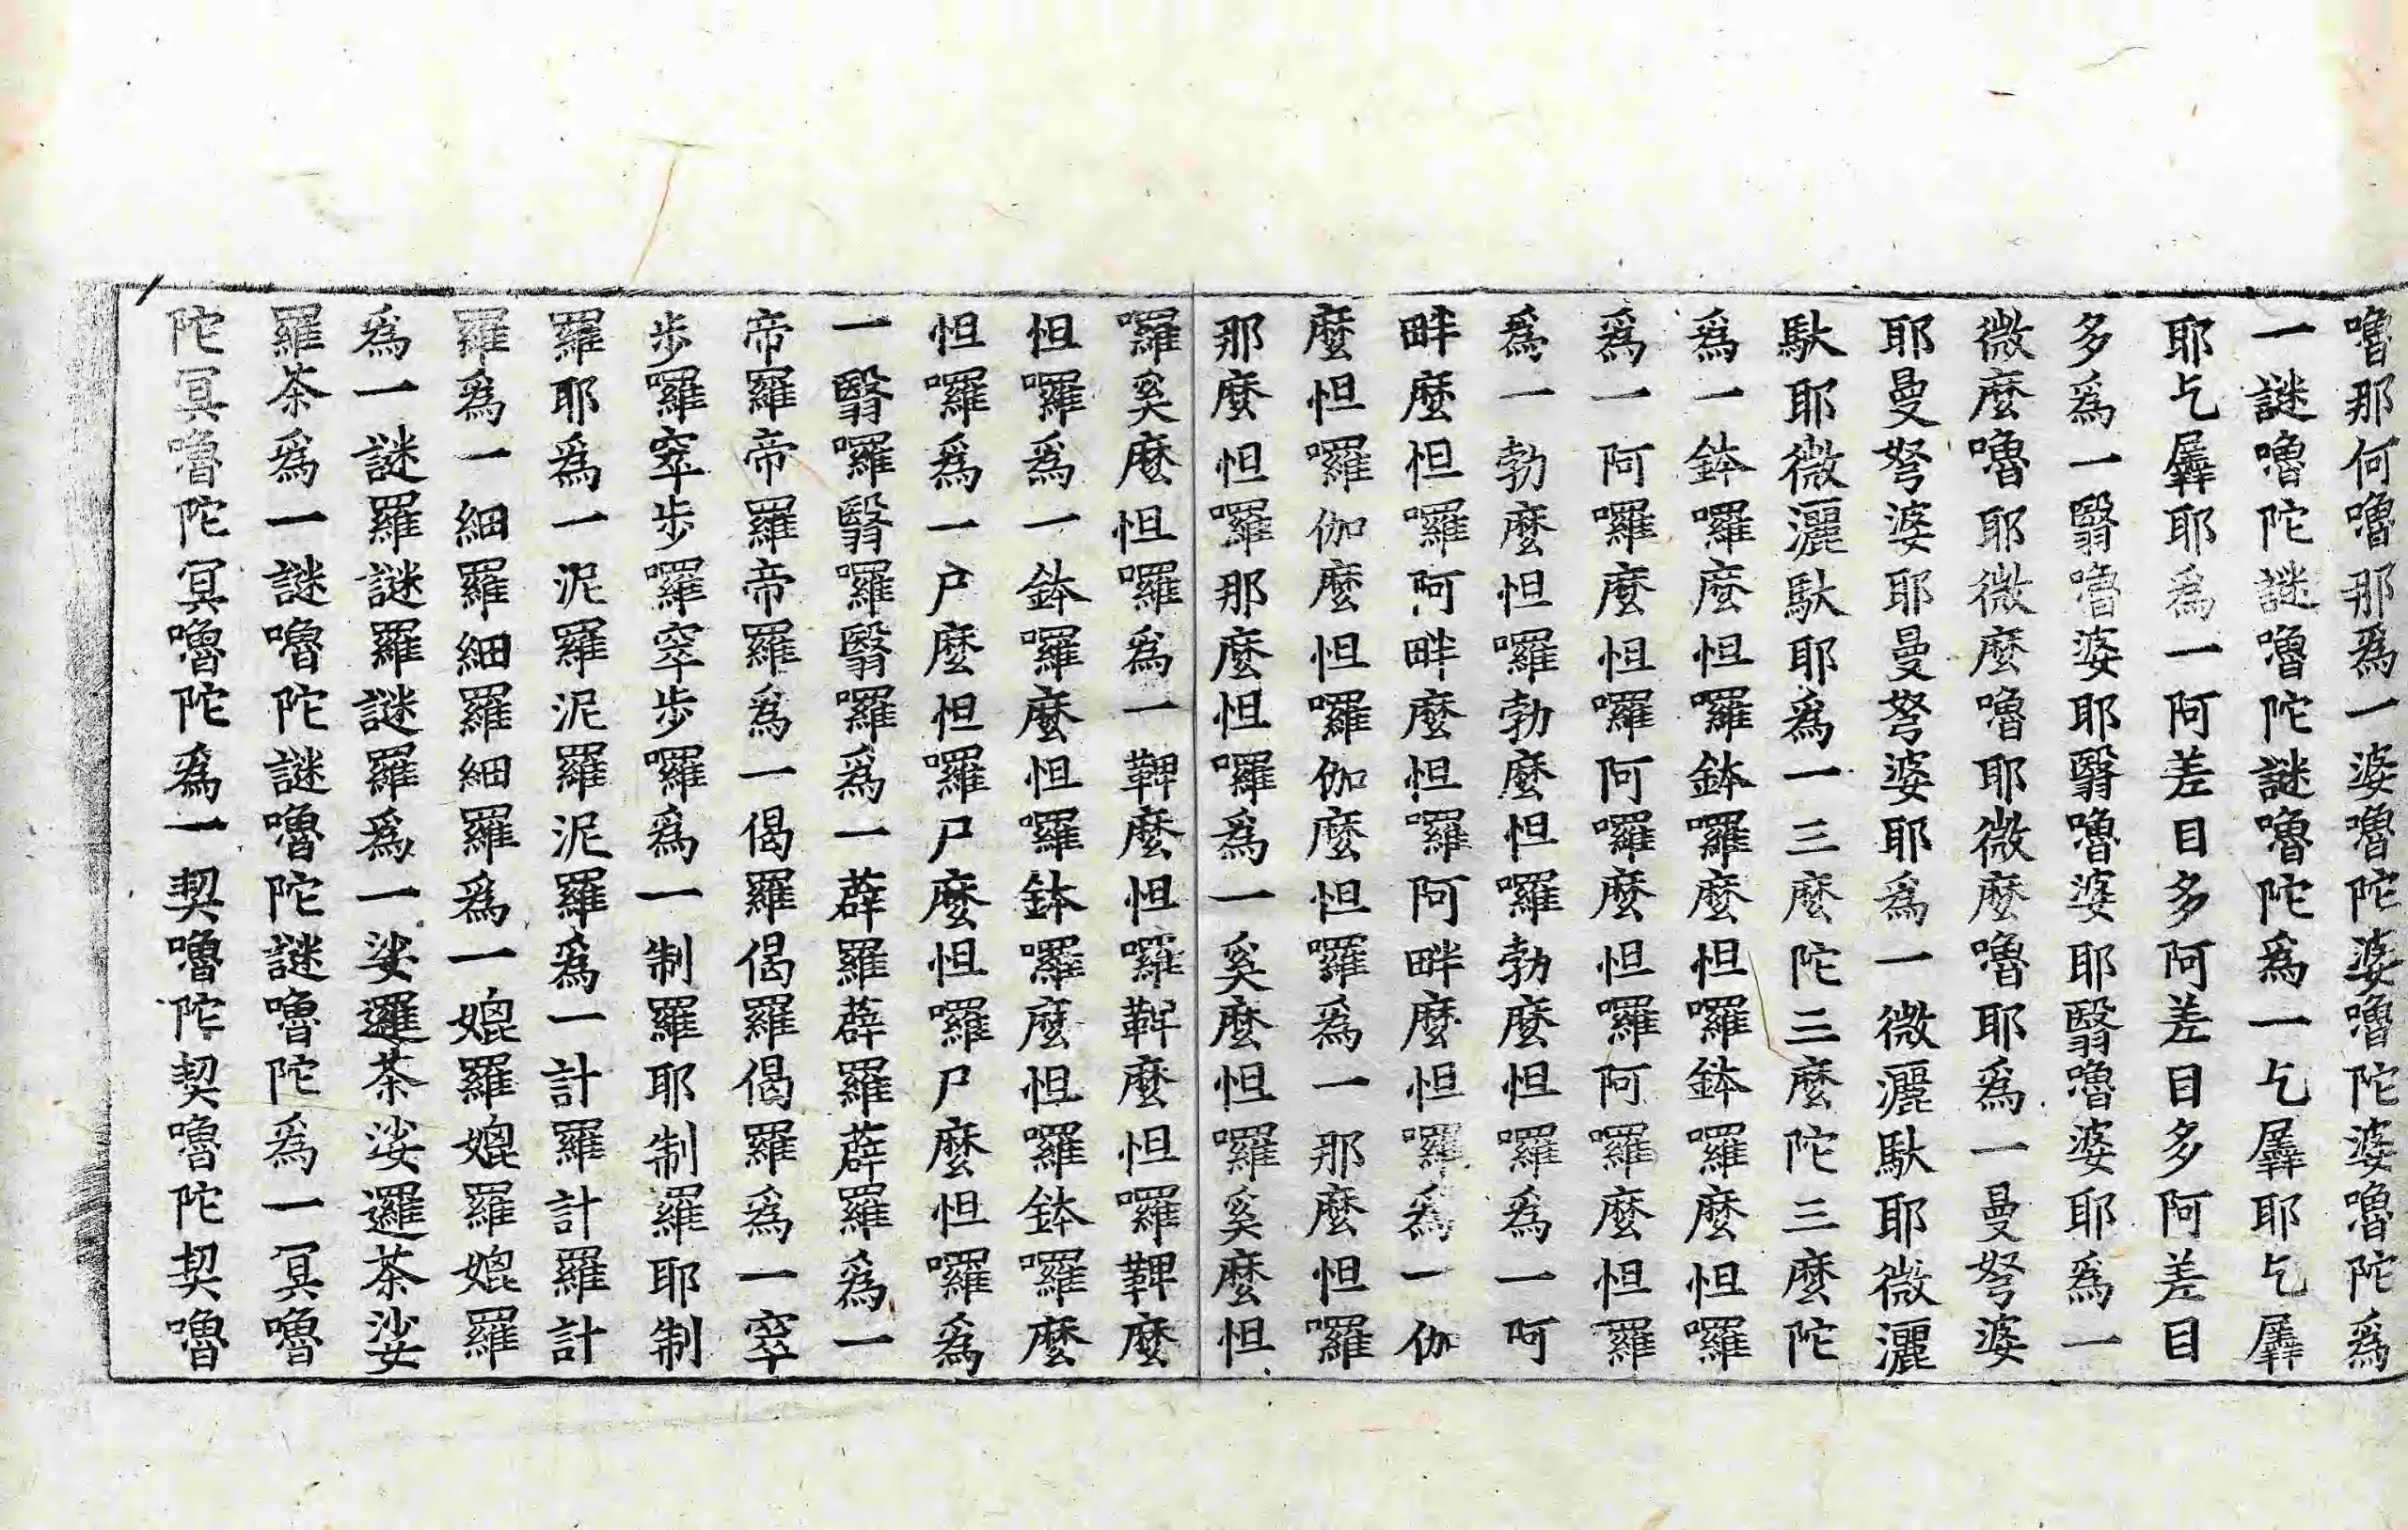 嚕那何嚕那爲一婆嚕陀婆嚕陀婆嚕陀爲
一謎嚕陀謎嚕陀謎嚕陀爲一乞羼耶乞羼
耶乞羼耶爲一阿差目多阿差目多阿差目
多爲一翳嚕婆耶翳嚕婆耶翳嚕婆耶爲一
微麼嚕耶微麼嚕耶微麼嚕耶爲一曼弩婆
耶曼弩婆耶曼弩婆耶爲一微灑馱耶微灑
馱耶微灑馱耶爲一三麼陀三麼陀三麼陀
爲一鉢囉麼怛囉鉢囉麼怛囉鉢囉麼怛囉
爲一阿囉麼怛囉阿囉麼怛囉阿囉麼怛囉
爲一勃麼怛囉勃麼怛囉勃麼怛囉爲一阿
畔麼怛囉阿畔麼怛囉阿畔麼怛囉爲一伽
麼怛囉伽麼怛囉伽麼怛囉爲一那麼怛囉
那麼怛囉那麼怛囉爲一奚麼怛囉奚麼怛
囉奚麼怛囉爲一鞞麼怛囉鞞麼怛囉鞞麼
怛囉爲一鉢囉麼怛囉鉢囉麼怛囉鉢囉麼
怛囉爲一尸麼怛囉尸麼怛囉尸麼怛囉爲
一翳囉翳囉翳囉爲一薜羅薜羅薜羅爲一
帝羅帝羅帝羅爲一偈羅偈羅偈羅爲一窣
步囉窣步囉窣步囉爲一制羅耶制羅耶制
羅耶爲一泥羅泥羅泥羅爲一計羅計羅計
羅爲一細羅細羅細羅爲一媲羅媲羅媲羅
爲一謎羅謎羅謎羅爲一娑邏荼娑邏荼娑
羅荼爲一謎嚕陀謎嚕陀謎嚕陀爲一冥嚕
陀冥嚕陀冥嚕陀爲一契嚕陀契嚕陀契嚕